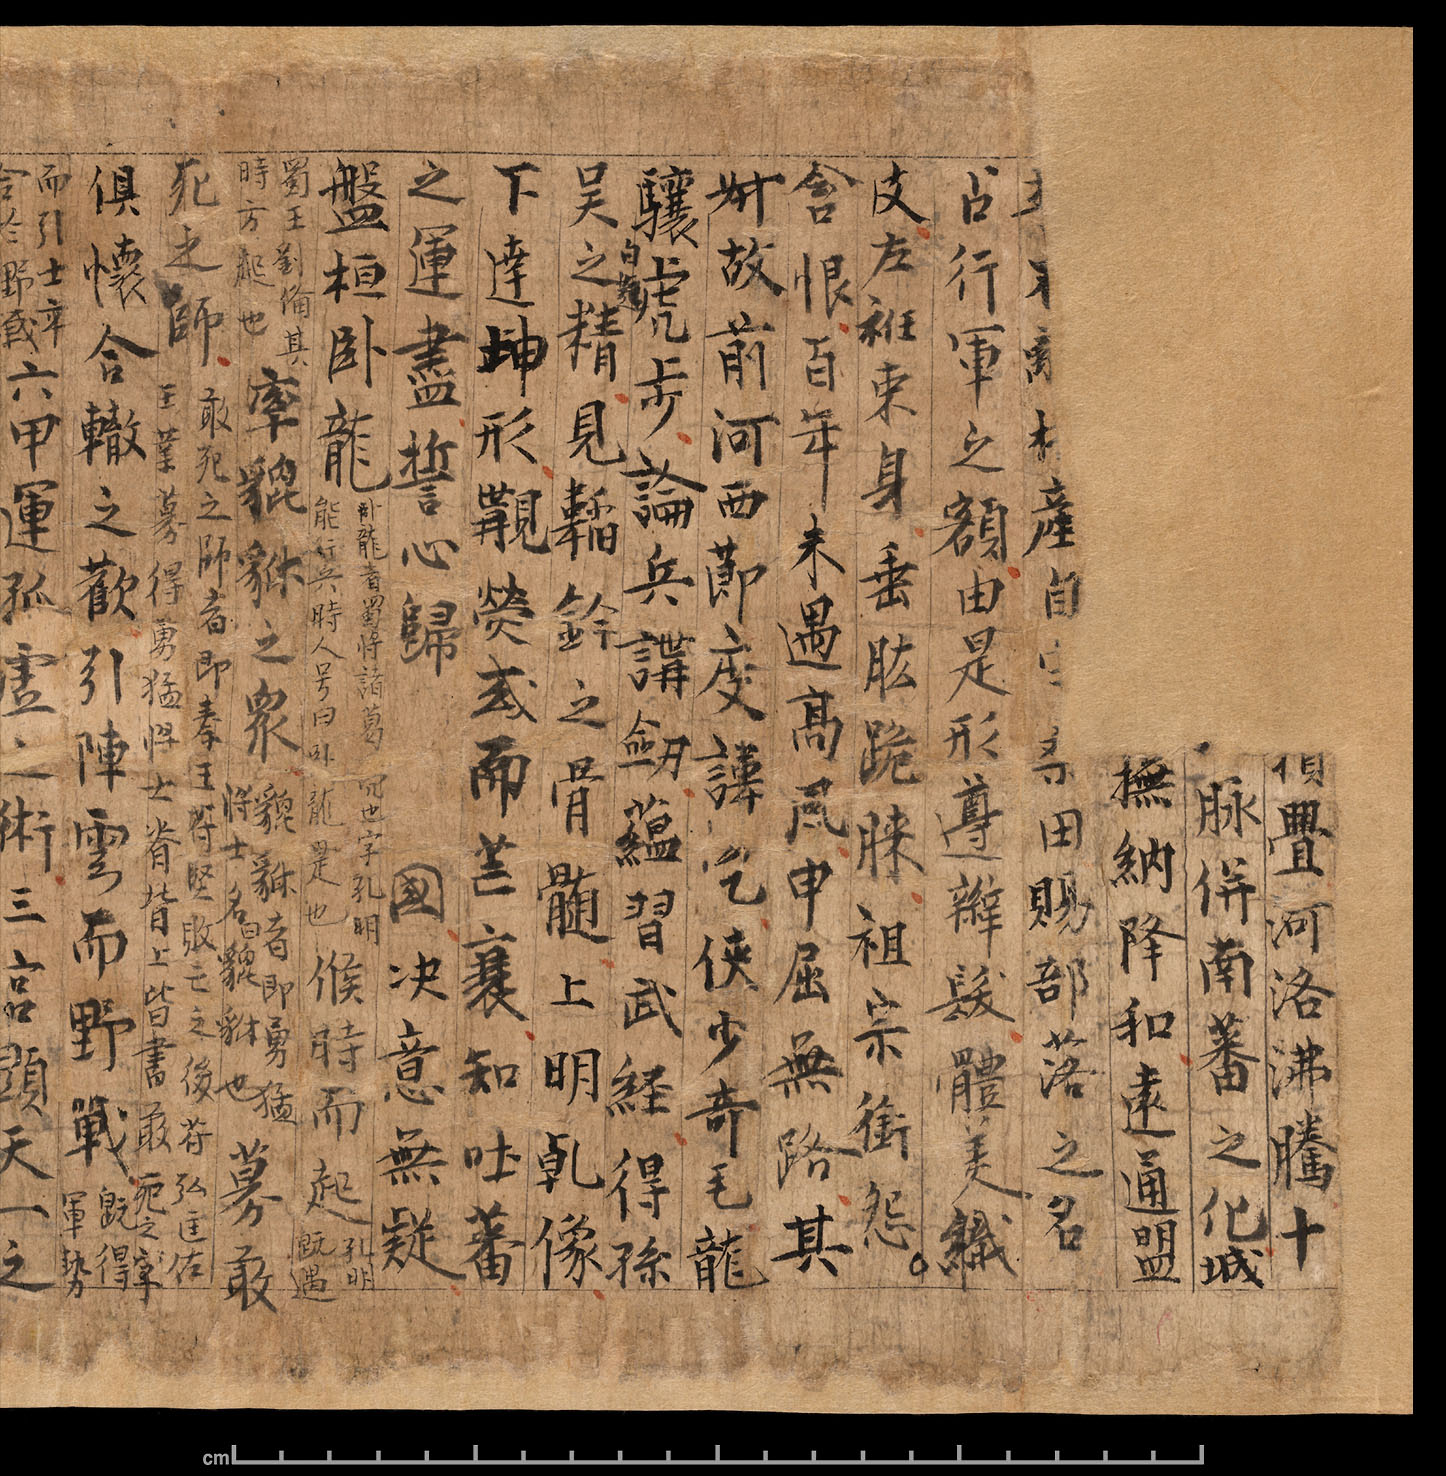 疊河洛沸騰十
脉併南蕃之化城
撫納降和遠通盟
産自田賜部落之名
占行軍之額由是形遵辮髮體美織
皮左袵束身垂肱跪膝祖宗銜怨
含恨百年未遇高風申屈無路其
叔故前河西節度謹乞俠少奇毛龍
驤虎步論兵講劒蘊習武経得孫
白起
吴之精見韜鈐之骨髓上明乹像
下達坤形覩熒惑而芒衰知吐蕃
之運盡誓心歸國決意無疑
盤桓卧龍
卧龍者蜀將諸葛
也字孔明
能行兵時人号曰卧龍是也
候時而起
孔明
既遇
蜀王劉備其
時方起也
率貔貅之衆
貔貅者即勇猛
將士名曰貔貅也
募敢
死之師
敢死之師者即秦王苻堅敗亡之後苻弘匡佐
王業募得勇猛悍士眷皆上皆書敢死之字
既得
軍勢
俱懷合轍之歡引陣雲而野戰
而引士卒
合於野戰
六甲運孤虚之術三宫顯天一之